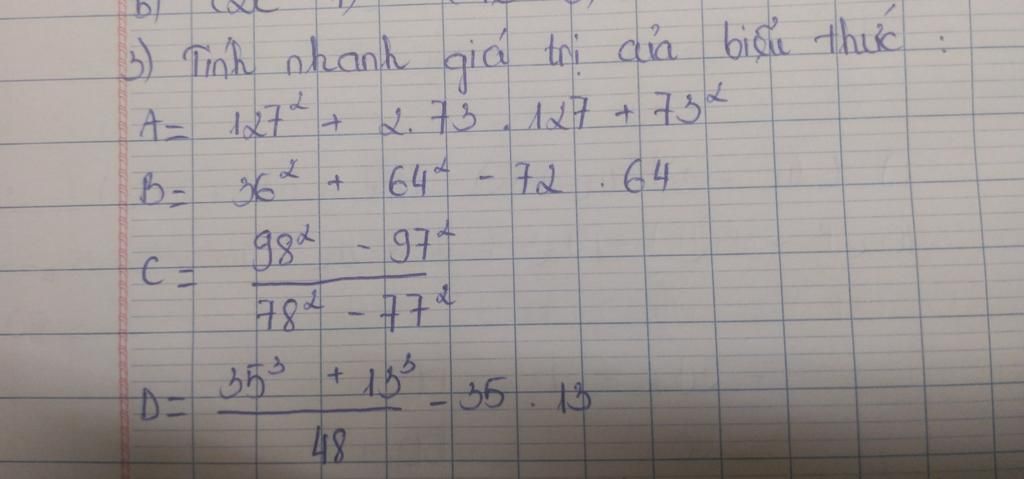 3) Tính nhanh giá trị của biểu thức :
A = 127² + 2.73 . 127 + 73²
B = 36² + 64² - 72 . 64
C = (98² - 97²) / (78² - 77²)
D = (35³ + 13³) / 48 - 35 . 13